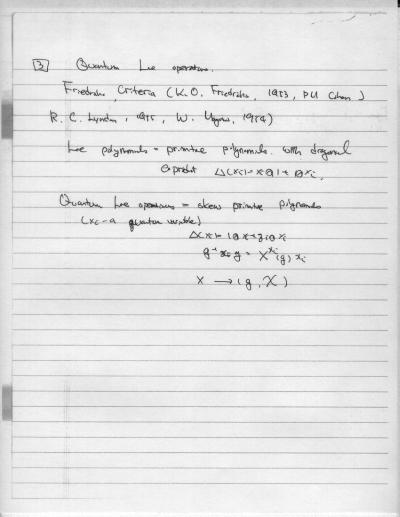 3 Quantum Lie operations.
Friedrichs Criteria (K.O. Friedrichs, 1953, P.M. Cohn)
R. C. Lyndon, 1955, W. Magnus, 1954)
Lie polynomials = primitive polynomials with diagonal
coproduct Δ(xᵢ) = xᵢ⊗1 + 1⊗xᵢ.
Quantum Lie operations = skew primitive polynomials
(xᵢ - a quantum variable)
Δ(xᵢ) = 1⊗xᵢ + gᵢ⊗xᵢ
g⁻¹ xᵢ g = χ^{xᵢ}(g) xᵢ
x → (g, χ)